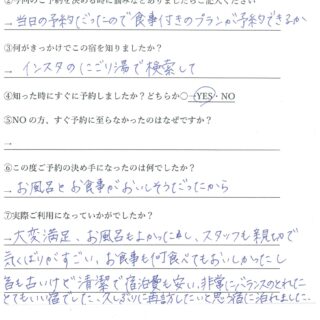 →当日の予約だったので食事付きのプランが予約できるか
③何がきっかけでこの宿を知りましたか？
→インスタのにごり湯で検索して
④知った時にすぐに予約しましたか？どちらか○→YES・NO
⑤NO の方、すぐ予約に至らなかったのはなぜですか？
→
⑥この度ご予約の決め手になったのは何でしたか？
→お風呂とお食事がおいしそうだったから
⑦実際ご利用になっていかがでしたか？
→大変満足、お風呂もよかったし、スタッフも親切で
気くばりがすごい、お食事も何食べてもおいしかったし
も古いけど清潔で宿泊費も安い、非常にバランスのとれた
とてもいい宿でした、久しぶりに再訪したいと思う宿に泊れました。